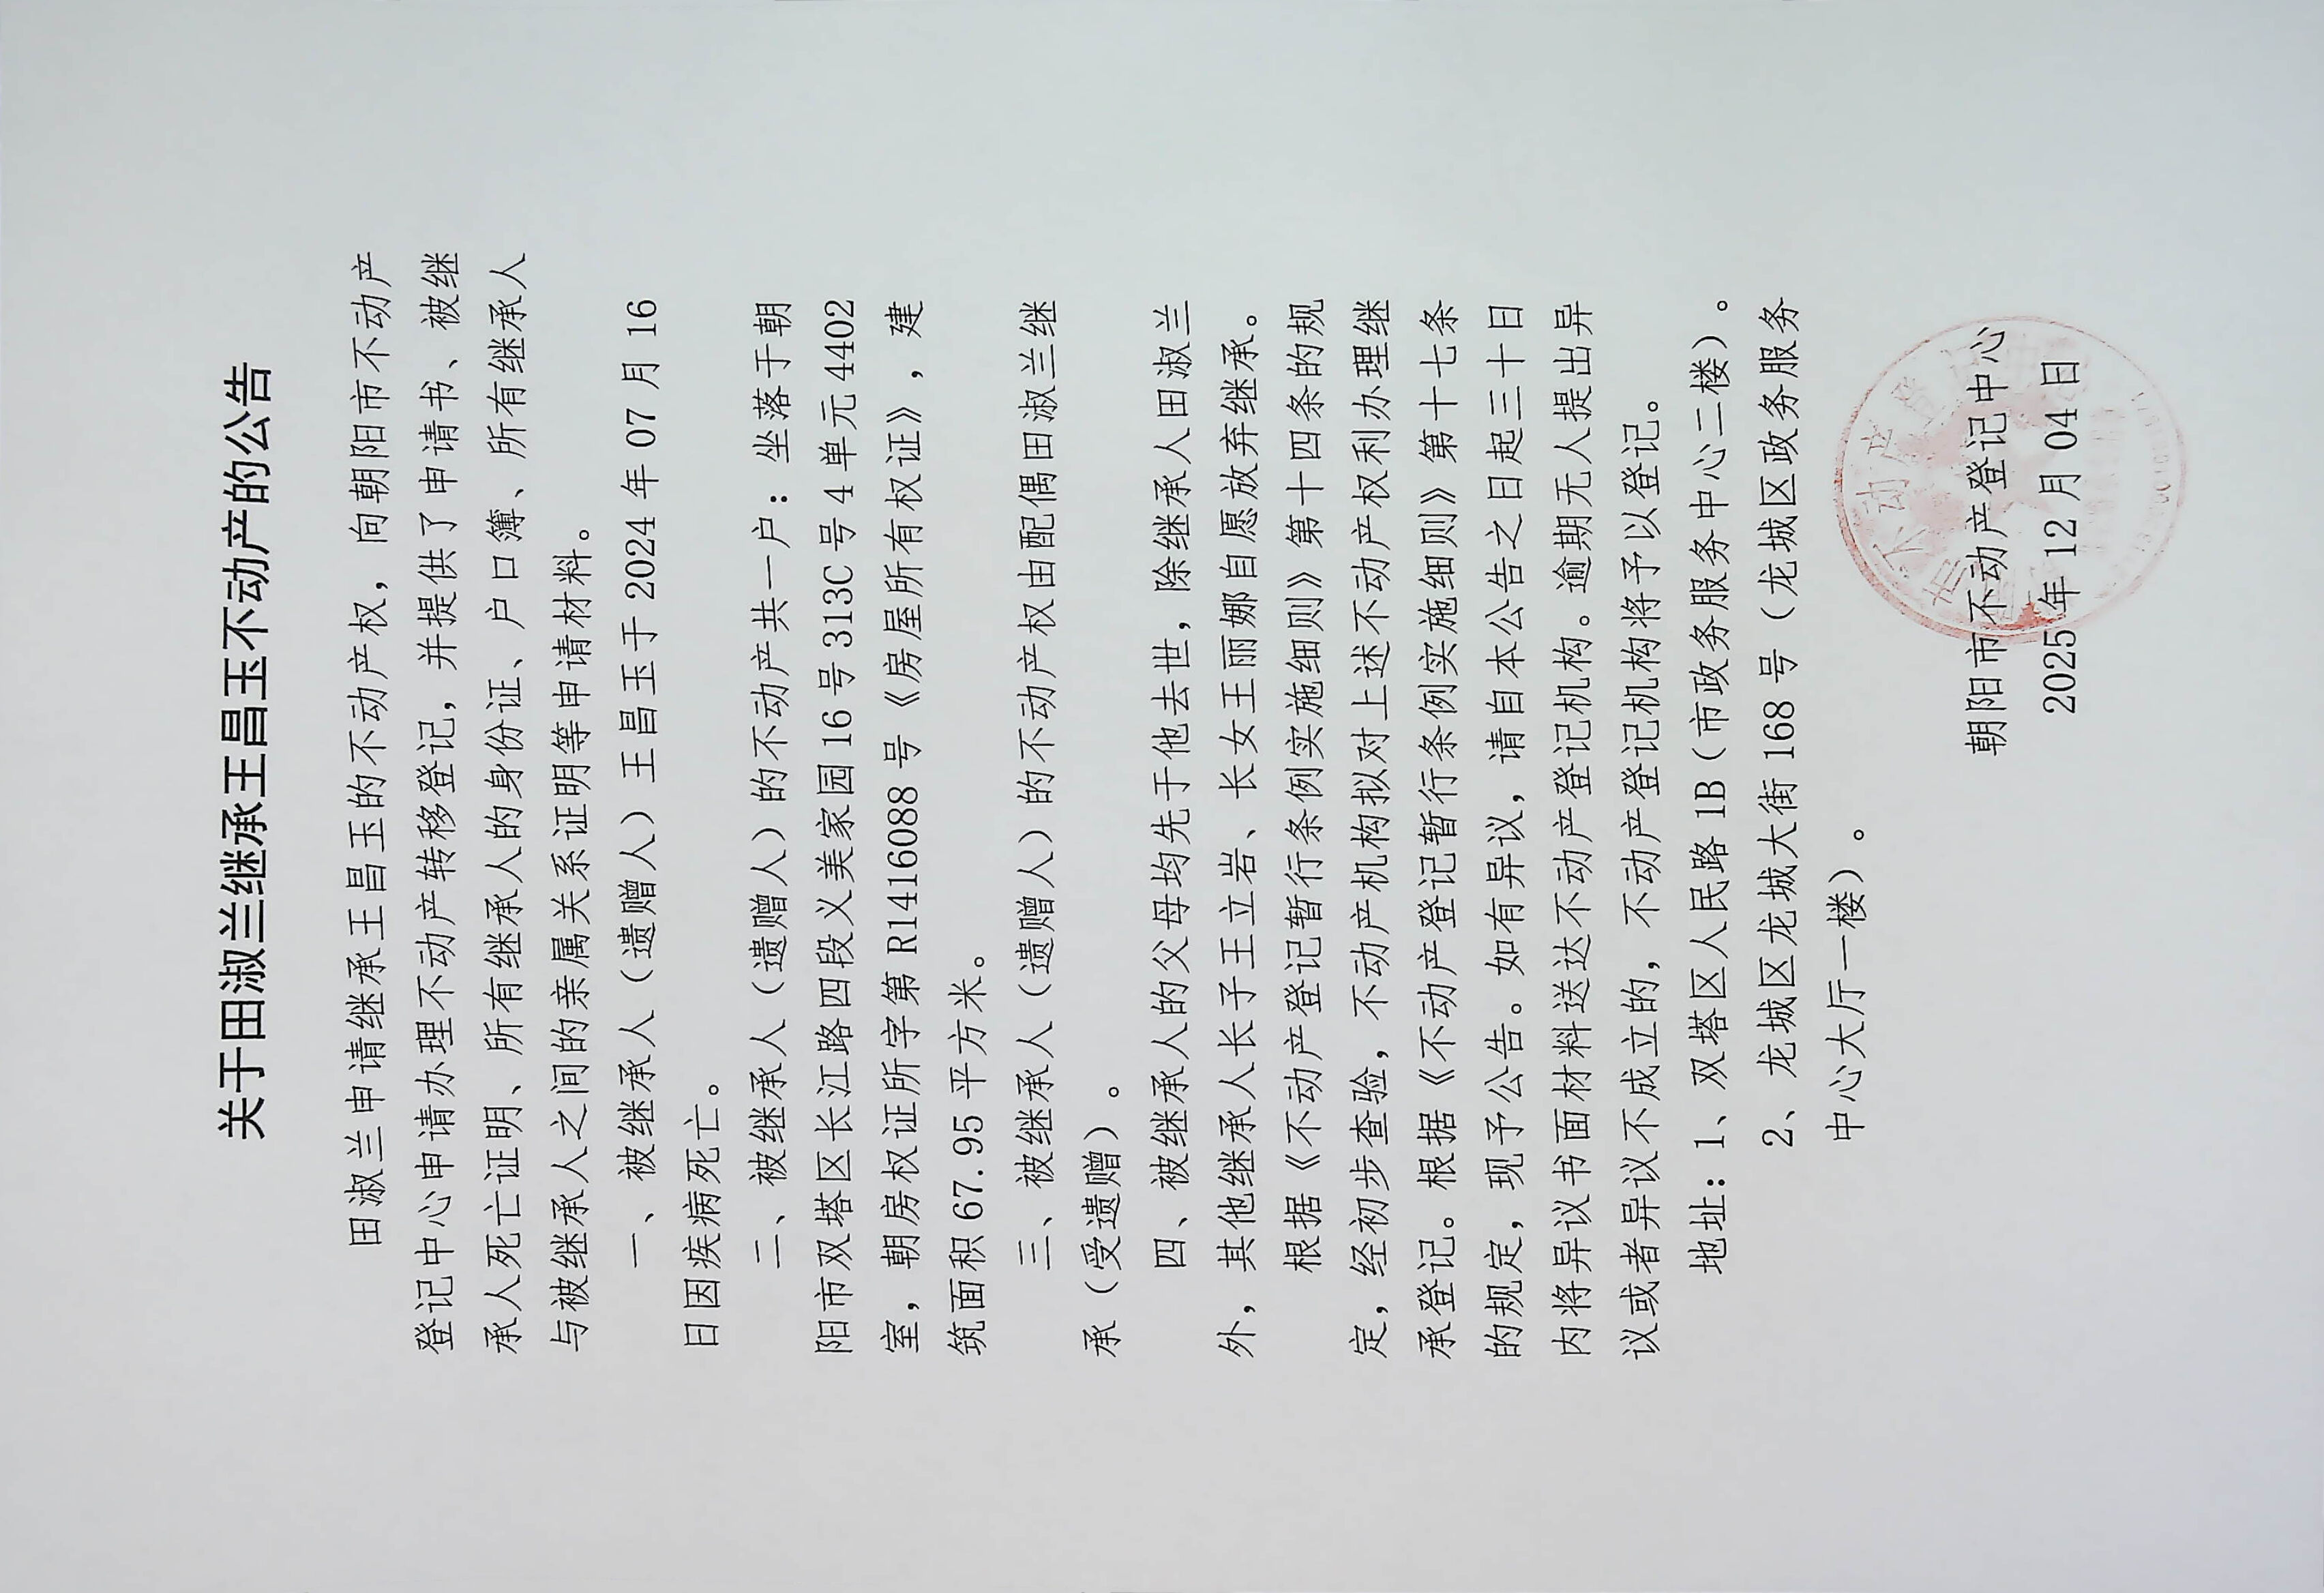 关于田淑兰继承王昌玉不动产的公告
田淑兰申请继承王昌玉的不动产权，向朝阳市不动产
登记中心申请办理不动产转移登记，并提供了申请书、被继
承人死亡证明、所有继承人的身份证、户口簿、所有继承人
与被继承人之间的亲属关系证明等申请材料。
一、被继承人（遗赠人）王昌玉于 2024 年 07 月 16
日因疾病死亡。
二、被继承人（遗赠人）的不动产共一户：坐落于朝
阳市双塔区长江路四段义美家园 16 号 313C 号 4 单元 4402
室，朝房权证所字第 R1416088 号《房屋所有权证》，建
筑面积 67.95 平方米。
三、被继承人（遗赠人）的不动产权由配偶田淑兰继
承（受遗赠）。
四、被继承人的父母均先于他去世，除继承人田淑兰
外，其他继承人长子王立岩、长女王丽娜自愿放弃继承。
根据《不动产登记暂行条例实施细则》第十四条的规
定，经初步查验，不动产机构拟对上述不动产权利办理继
承登记。根据《不动产登记暂行条例实施细则》第十七条
的规定，现予公告。如有异议，请自本公告之日起三十日
内将异议书面材料送达不动产登记机构。逾期无人提出异
议或者异议不成立的，不动产登记机构将予以登记。
地址：1、双塔区人民路 1B（市政务服务中心二楼）。
2、龙城区龙城大街 168 号（龙城区政务服务
中心大厅一楼）。
朝阳市不动产登记中心
2025年 12 月 04 日